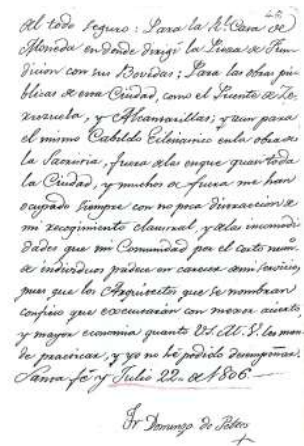 al todo seguro: Para la Rl. Casa de
Moneda en donde dirigí la Pieza de Fun-
dicion con sus Bovedas; Para las obras pu-
blicas de esta Ciudad, como el Puente de
y Alcantarillas; y aun para
el mismo Cabildo Eclesiastico en la obra de
la Sacristia, fuera de las en que quasi toda
la Ciudad, y muchos de fuera me han
ocupado siempre con no poca distraccion de
mi recogimiento claustral, y de las incomodi-
dades que mi Comunidad por el corto num.
de individuos padece en carecer de mi servicio,
pues que los Arquitectos que se nombran
confieso que executarán con menor acierto,
y mayor economia quanto V.S. M. I. les man-
de practicar, y yo no hé podido desempeñar.
Santa fé y Julio 22 de 1806
Fr. Domingo de Petres